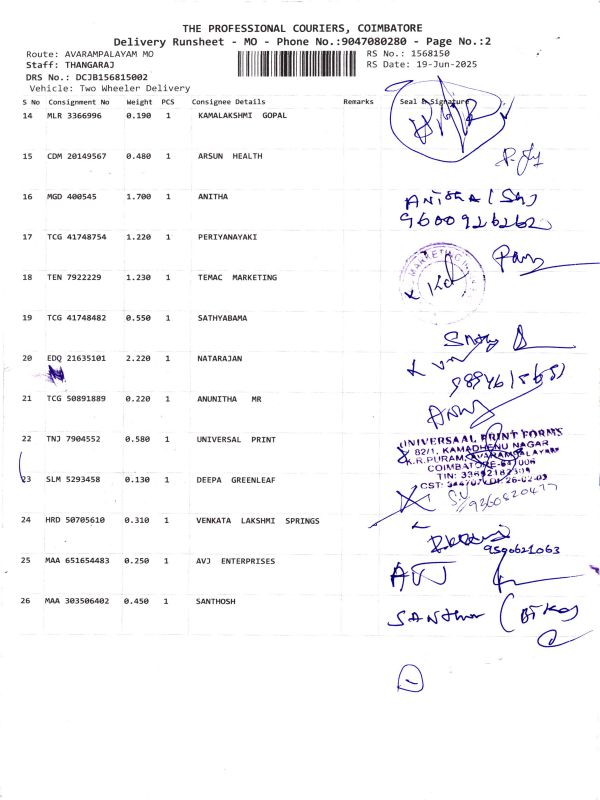 THE PROFESSIONAL COURIERS, COIMBATORE
Delivery Runsheet - MO - Phone No.:9047080280 - Page No.:2
Route: AVARAMPALAYAM MO RS No.: 1568150
Staff: THANGARAJ RS Date: 19-Jun-2025
DRS No.: DCJB156815002
Vehicle: Two Wheeler Delivery
S No Consignment No Weight PCS Consignee Details Remarks Seal & Signature
14 MLR 3366996 0.190 1 KAMALAKSHMI GOPAL
15 CDM 20149567 0.480 1 ARSUN HEALTH
16 MGD 400545 1.700 1 ANITHA ANITHA
9600926262
17 TCG 41748754 1.220 1 PERIYANAYAKI
MARKETING
18 TEN 7922229 1.230 1 TEMAC MARKETING
19 TCG 41748482 0.550 1 SATHYABAMA
20 EDQ 21635101 2.220 1 NATARAJAN
21 TCG 50891889 0.220 1 ANUNITHA MR
22 TNJ 7904552 0.580 1 UNIVERSAL PRINT
UNIVERSAAL PRINT FORMS
82/1, KAMADHENU NAGAR
K.R.PURAM, AVARAMPALAYAM
COIMBATORE-641 006
TIN: 33642182309
23 SLM 5293458 0.130 1 DEEPA GREENLEAF
24 HRD 50705610 0.310 1 VENKATA LAKSHMI SPRINGS
9590621063
25 MAA 651654483 0.250 1 AVJ ENTERPRISES AVJ
26 MAA 303506402 0.450 1 SANTHOSH